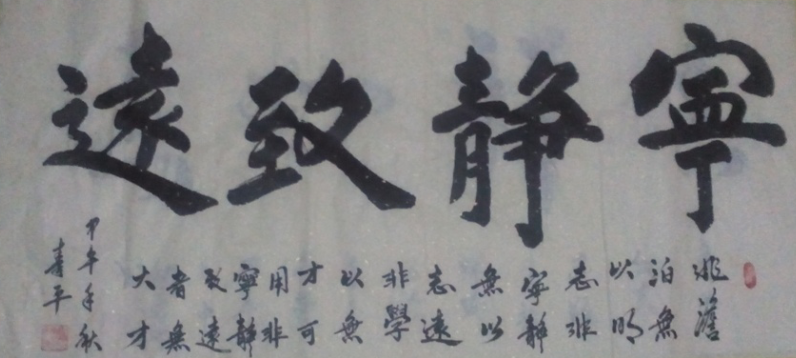 寧靜致遠
非澹
泊無
以明
志非
寧靜
無以
志遠
非學
以無
才可
用非
寧靜
致遠
者無
大才
甲午年秋
平